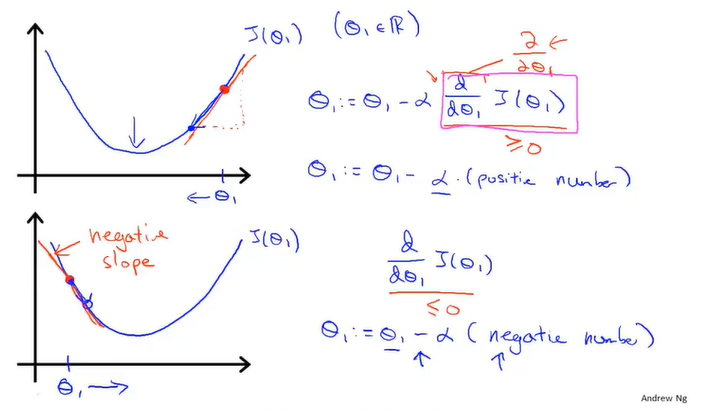 J(θ₁) (θ₁ ∈ ℝ)
∂/∂θ₁
θ₁ := θ₁ - α d/dθ₁ J(θ₁)
≥ 0
θ₁ := θ₁ - α · (positie number)
← θ₁
negative
slope
J(θ₁)
d/dθ₁ J(θ₁)
≤ 0
θ₁ := θ₁ - α (negatie number)
θ₁ →
Andrew Ng